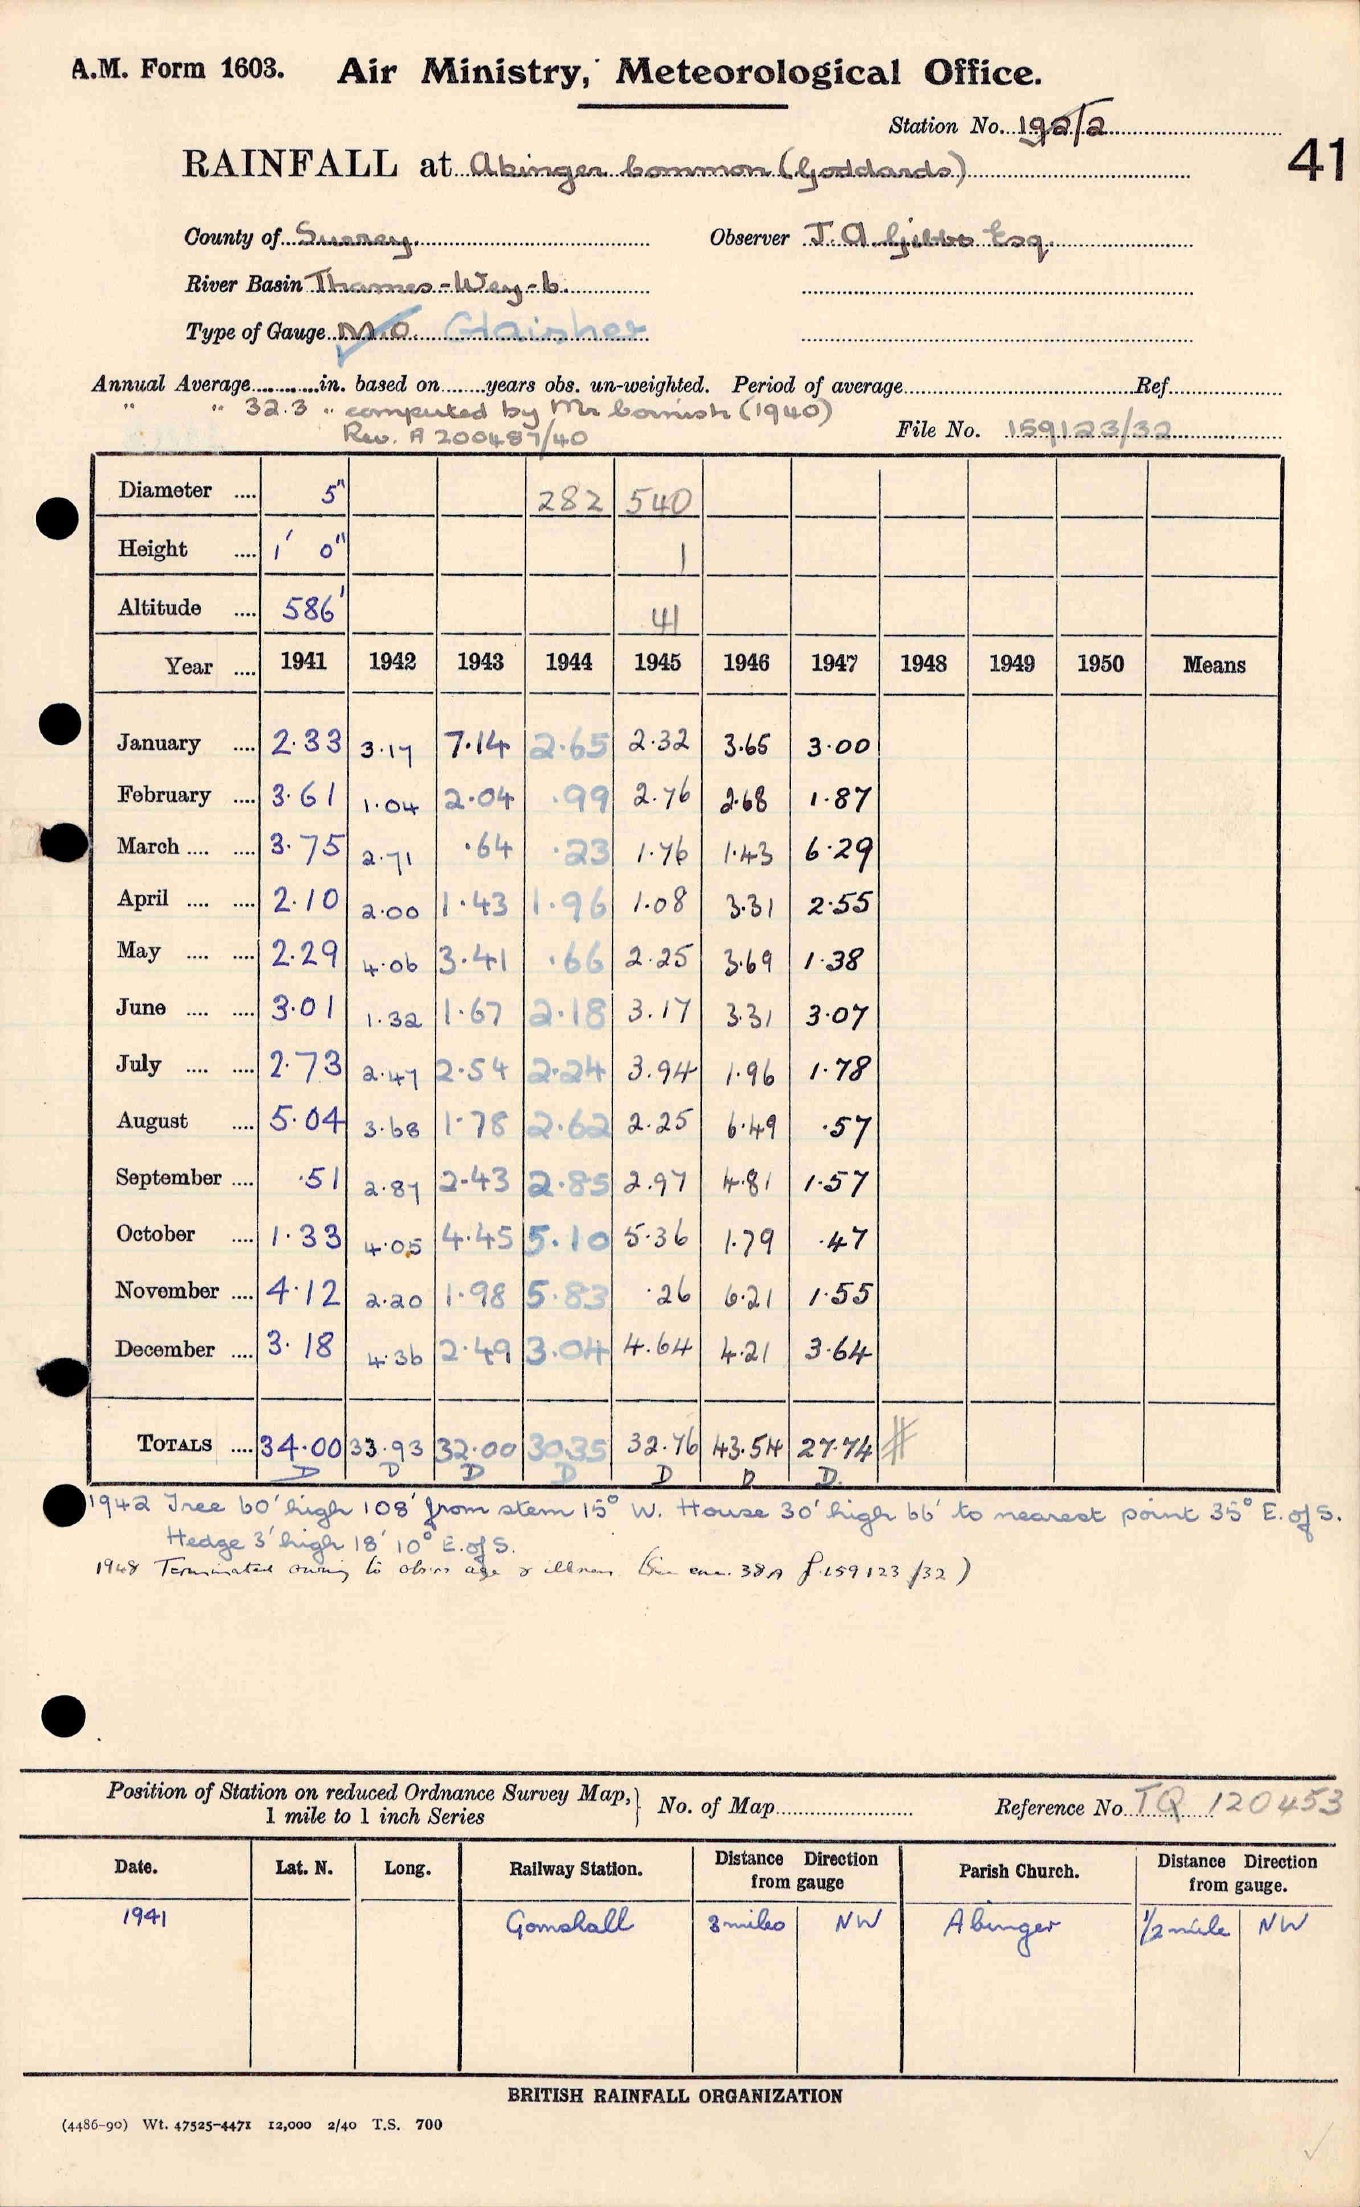 A.M. Form 1603. Air Ministry, Meteorological Office.
Station No. 192/2
41
RAINFALL at Abinger Common (Goddards)
County of Surrey. Observer J. A. Gibbs Esq.
River Basin Thames - Wey - b.
Type of Gauge M.O. Glaisher
Annual Average in. based on years obs. un-weighted. Period of average Ref.
" " 32.3 " computed by Mr Cornish (1940)
Rev. A 200487/40
File No. 159123/32
Diameter .... 5" 282 540
Height .... 1' 0" 1
Altitude .... 586' 41
Year .... 1941 1942 1943 1944 1945 1946 1947 1948 1949 1950 Means
January .... 2.33 3.17 7.14 2.65 2.32 3.65 3.00
February .... 3.61 1.04 2.04 .99 2.76 2.68 1.87
March .... .... 3.75 2.71 .64 .23 1.76 1.43 6.29
April .... .... 2.10 2.00 1.43 1.96 1.08 3.31 2.55
May .... .... 2.29 4.06 3.41 .66 2.25 3.69 1.38
June .... .... 3.01 1.32 1.67 2.18 3.17 3.31 3.07
July .... .... 2.73 2.47 2.54 2.24 3.94 1.96 1.78
August .... 5.04 3.68 1.78 2.62 2.25 6.49 .57
September .... .51 2.87 2.43 2.85 2.97 4.81 1.57
October .... 1.33 4.05 4.45 5.10 5.36 1.79 .47
November .... 4.12 2.20 1.98 5.83 .26 6.21 1.55
December .... 3.18 4.36 2.49 3.04 4.64 4.21 3.64
TOTALS .... 34.00 33.93 32.00 30.35 32.76 43.54 27.74 #
D D D D D D D.
1942 Tree 60' high 108' from stem 15° W. House 30' high 66' to nearest point 35° E. of S.
Hedge 3' high 18' 10° E. of S.
1948 Terminated owing to obsrs age & illness (See enc. 38A f.159123/32)
Position of Station on reduced Ordnance Survey Map, 1 mile to 1 inch Series } No. of Map Reference No. TQ 120453
Date. Lat. N. Long. Railway Station. Distance Direction from gauge Parish Church. Distance Direction from gauge.
1941 Gomshall 3 miles NW Abinger 1/2 mile NW
BRITISH RAINFALL ORGANIZATION
(4486-90) Wt. 47525-4471 12,000 2/40 T.S. 700